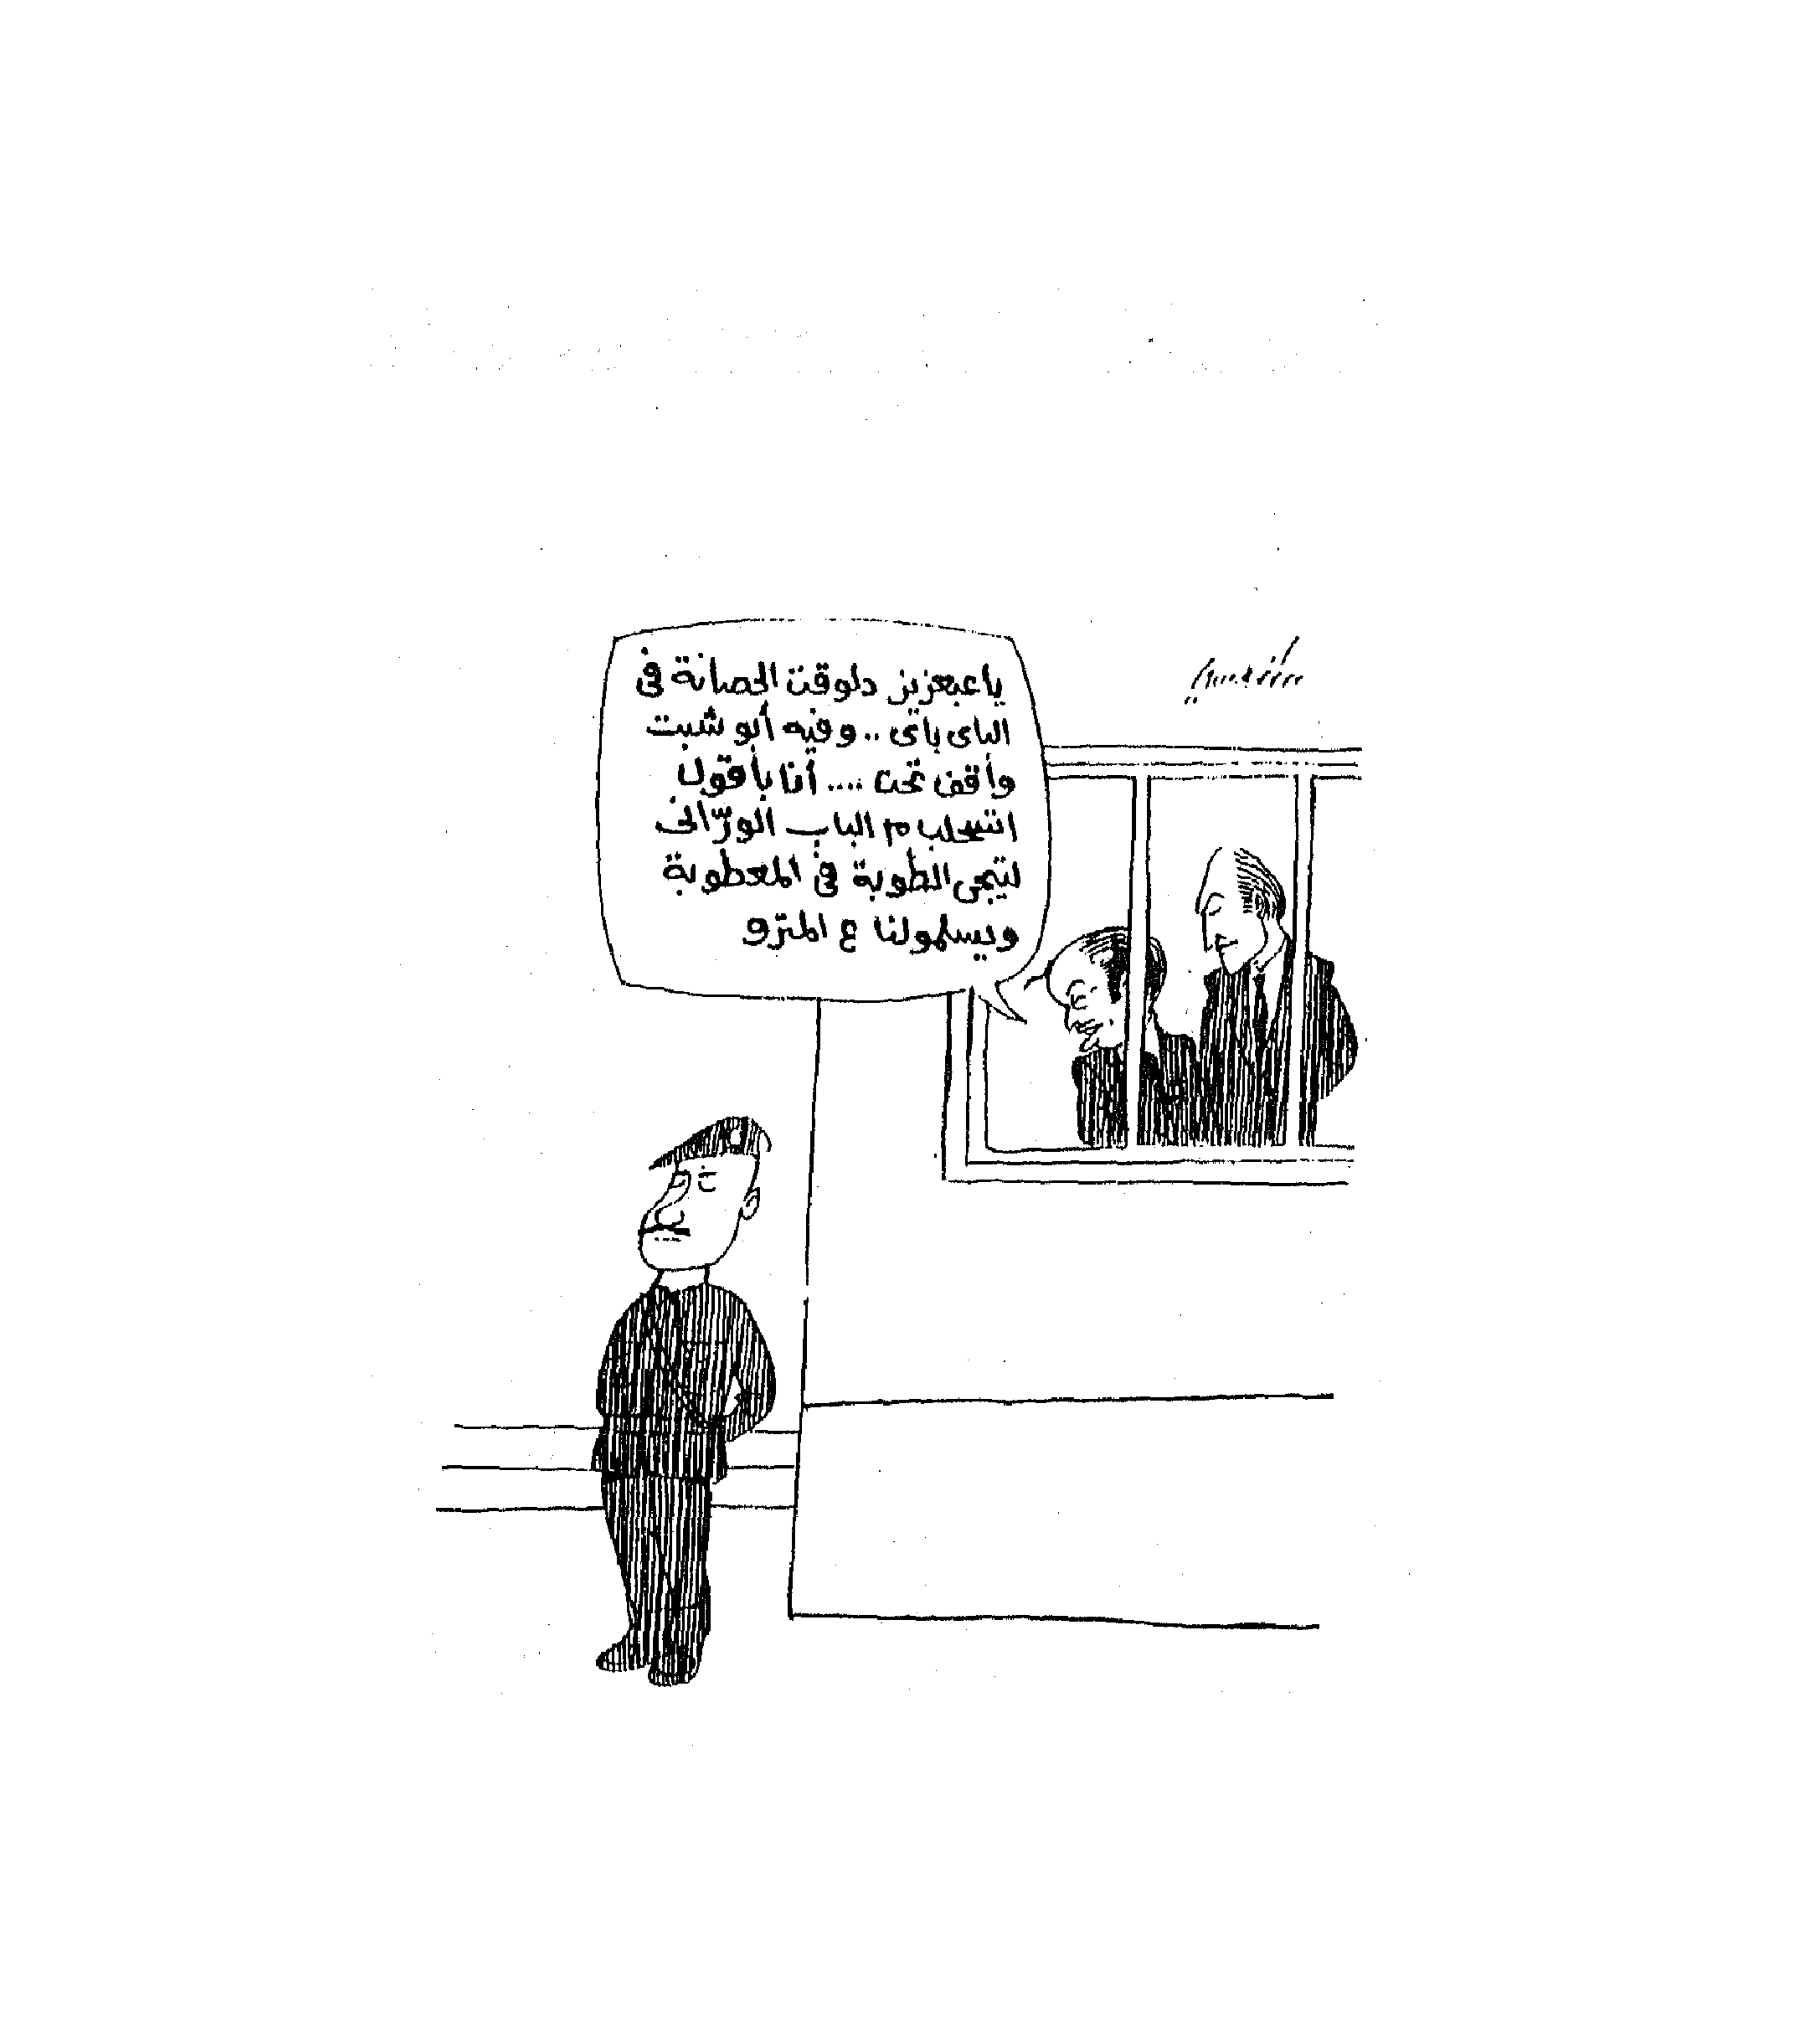 ياعبعزيز دلوقت الحصانة فى
الباى باى .. وفيه أبو شبت
واقف تحت .... أنا بأقول
انتسحلب م الباب الورّانى
لتيجى الطوبة فى المعطوبة
ويسلمولنا ع المترو